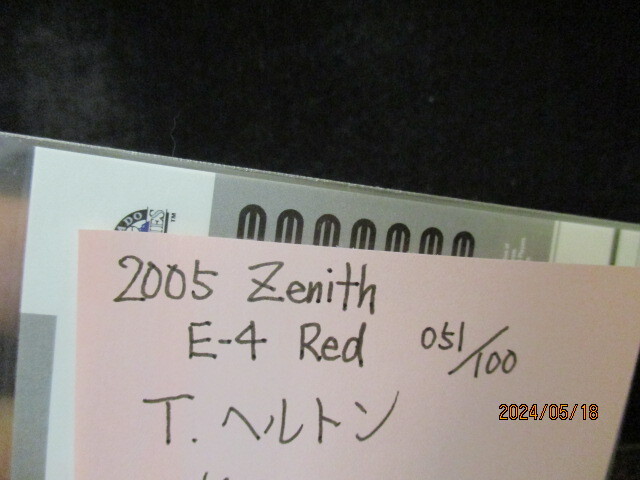 2005 Zenith
E-4 Red 051/100
T. ヘルトン
2024/05/18